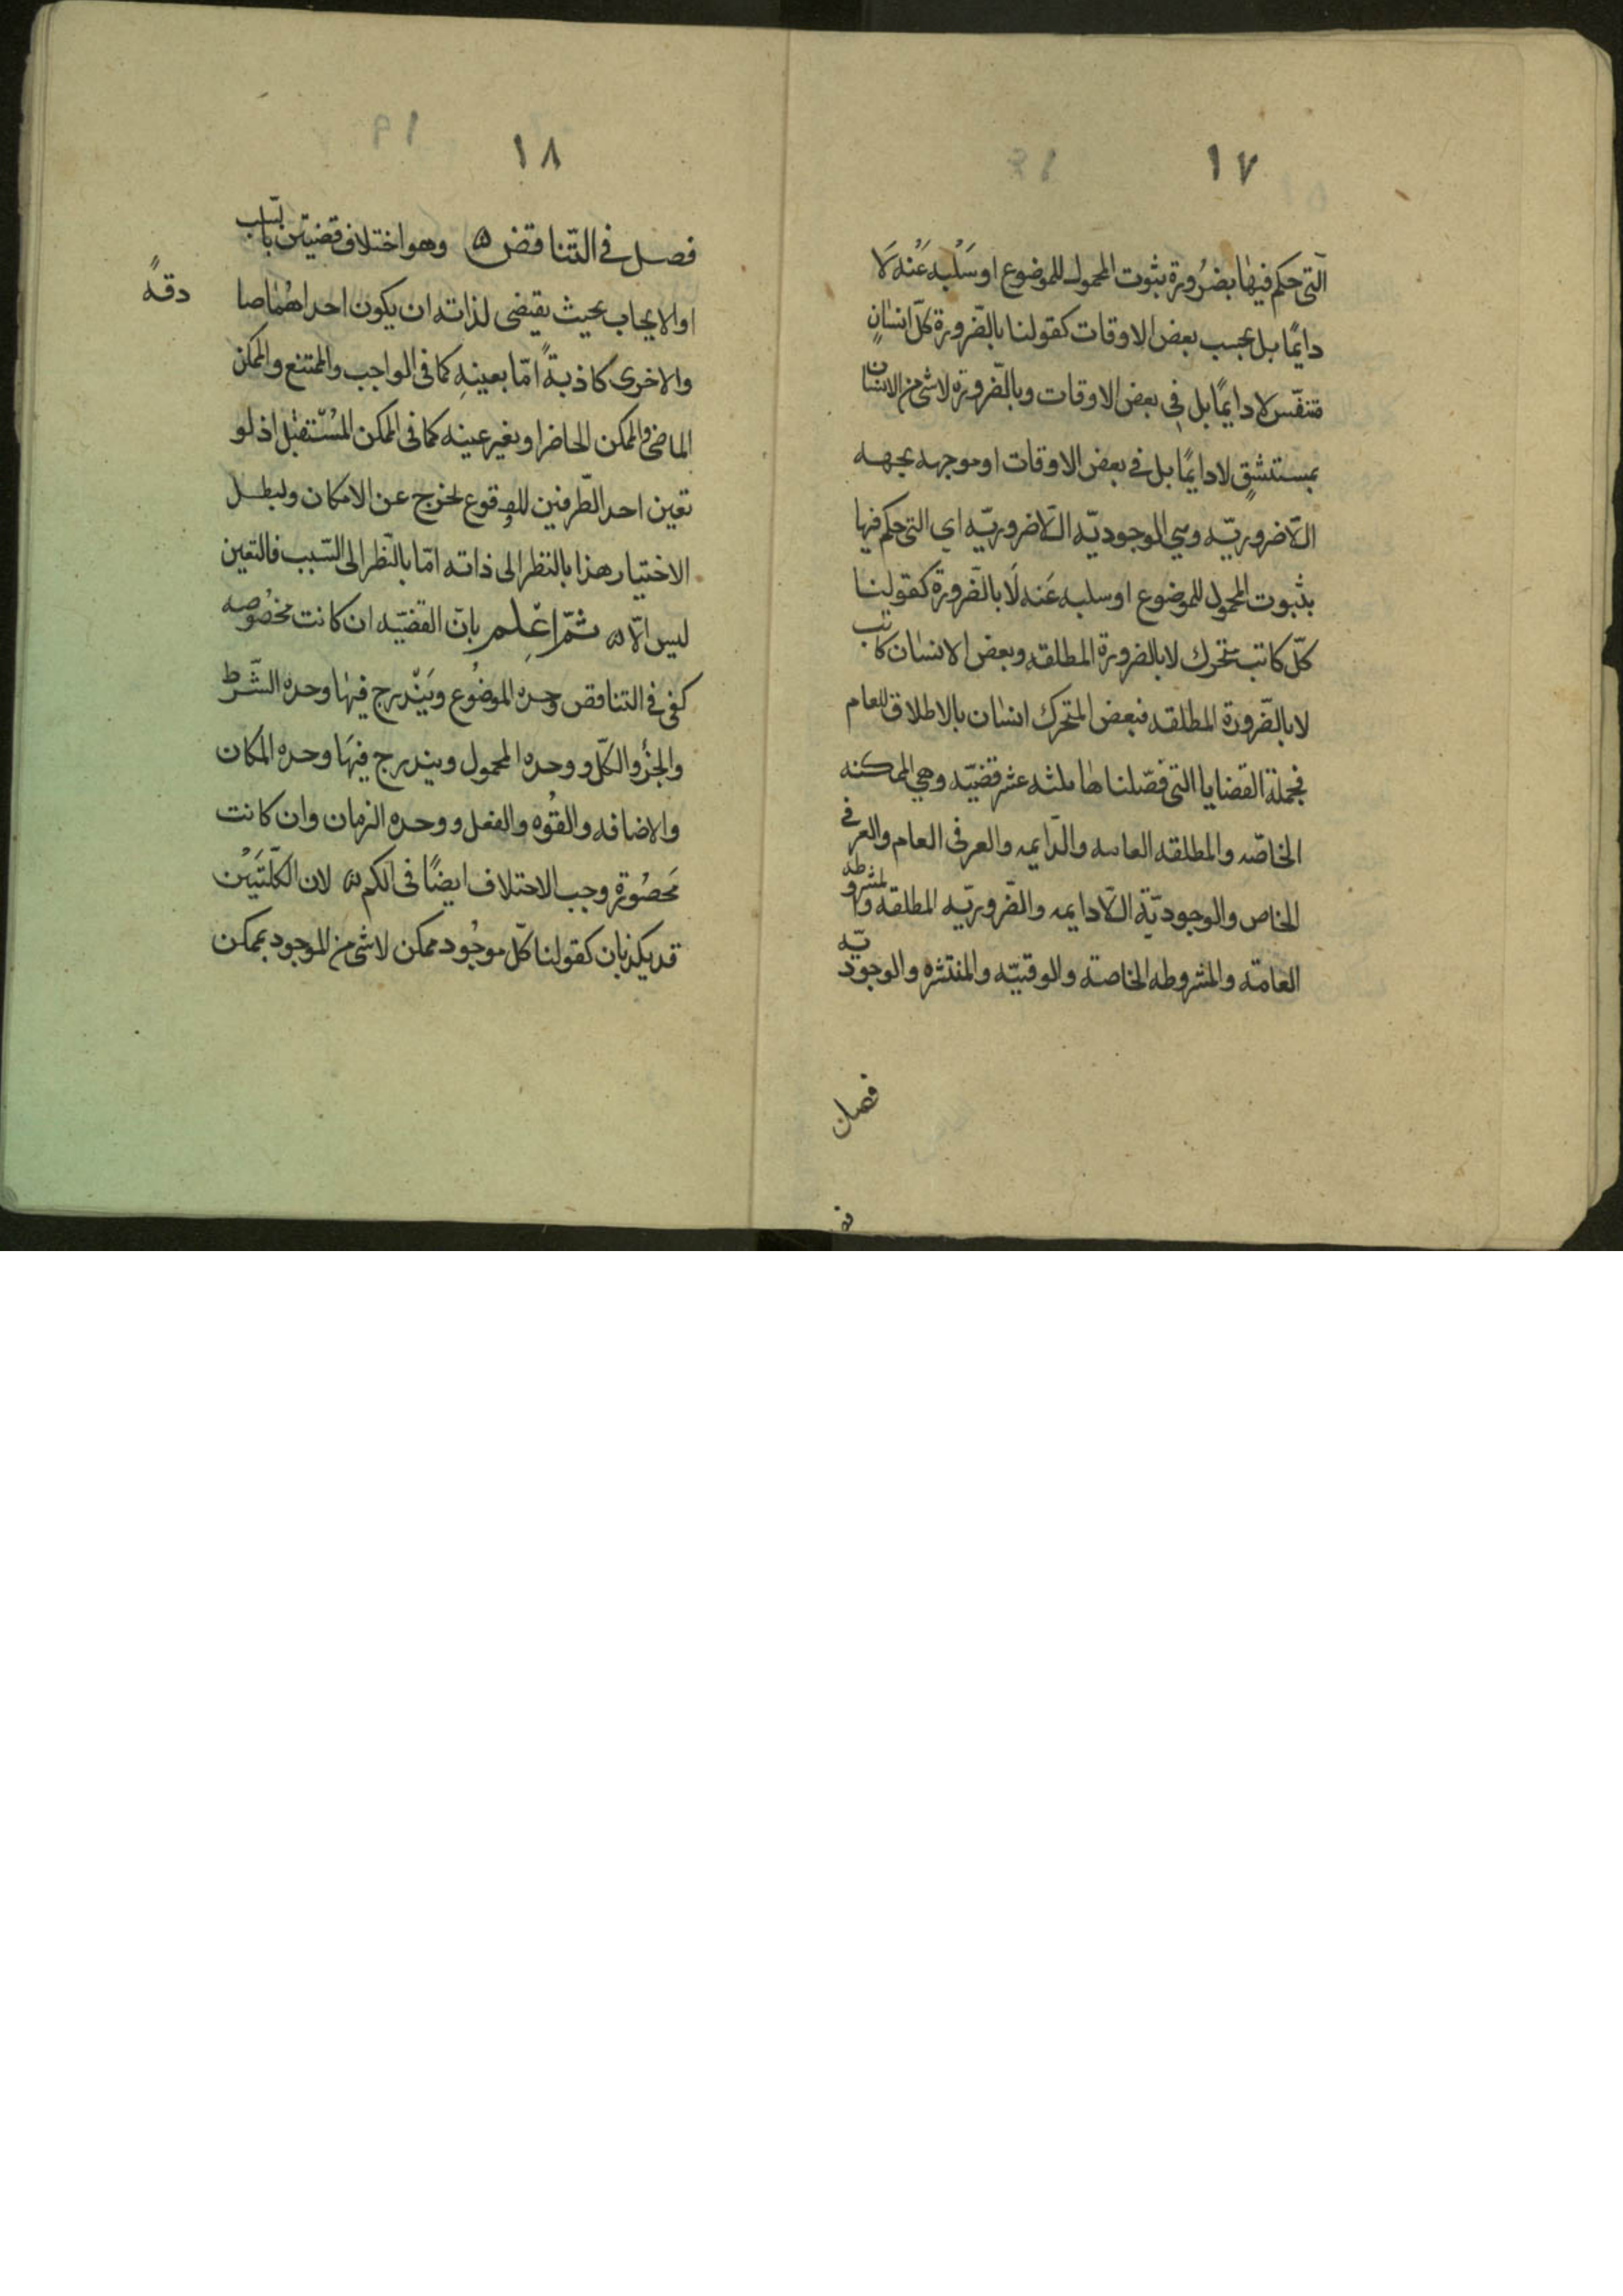 ١٧
التى حكم فيها بضرورة بثوت المحمول للموضوع او سَلْبه عَنْه لَا
دايمًا بل بحسب بعض الاوقات كقولنا بالضّرورة كلّ انسانٍ
متنفّس لا دايمًا بل فى بعض الاوقات وبالضّرورة لا شئ من الانسان
بمستنشقٍ لا دايمًا بل فى بعض الاوقات او موجهه بجهه
اللّاضروريّه وهي الوجوديّه اللّاضروريّه اي التى حكم فيها
بثبوت المحمول للموضوع او سلبه عَنه لَا بالضّرورة كقولنا
كلّ كاتب متحرك لا بالضرورة المطلقه وبعض الانسان كاتب
لا بالضّرورة المطلقه فبعض المتحرك انسان بالاطلاق العام
فجملة القضايا التى فصّلناها ثلثه عشر قضيّه وهي الممكنه
الخاصّه والمطلقه العامه والدّايمه والعرفى العام والعرفى
الخاص والوجوديّة اللّادايمه والضّروريّه المطلقه والمشروطه
العامّة والمشروطه الخاصة والوقتيّه والمنتشره والوجوديّه
فصل
١٨
فصل فى التّناقض وهو اختلاف قضيتين بالسّلب
او الايجاب بحيث يقتضى لذاته ان يكون احداهُمَا صا
دقةً
والاخرى كاذبةً امّا بعينهِ كما فى الواجب والممتنع والممكن
الماضى والممكن الحاضر او بغير عينه كما فى الممكن المُسْتقبل اذ لو
تعين احد الطّرفين للوقوع لخرج عن الامكان ولبطل
الاختيار هذا بالنظر الى ذاته امّا بالنّظر الى السّبب فالتعين
ليس الّا ثمّ اعْلم بانّ القضيّه ان كانت مخصُوصه
كفى فى التناقض وحده الموضُوع وَيَنْدرج فيها وحده الشّرط
والجزُ والكلّ و وحده المحمول ويندرج فيهَا وحده المكان
والاضافه والقُوه والفعل و وحده الزمان وان كانت
مَحصُورة وجب الاختلاف ايضًا فى الكم لان الكلّتَيَن
قد يكذبان كقولنا كلّ موجُود ممكن لا شئ من الموجود بممكن